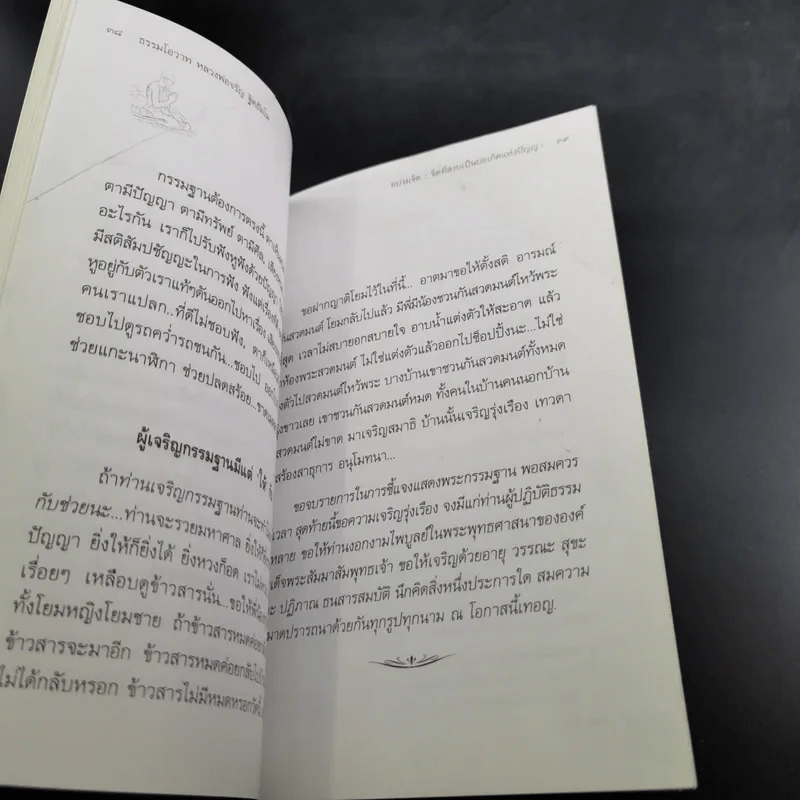 ๓๘ ธรรมโอวาท หลวงพ่อจรัญ ฐิตธมฺโม
กรรมฐานต้องการตรงนี้
ตามีปัญญา ตามีทรัพย์ ตามีศีล
อะไรกัน เราก็ไปรับฟังหูฟังด้วยปัญญา
มีสติสัมปชัญญะในการฟัง ฟังแต่เรื่อง
หูอยู่กับตัวเราแท้ๆดันออกไปหาเรื่อง
คนเราแปลก...ที่ดีไม่ชอบฟัง,
ชอบไปดูรถคว่ำรถชนกัน...ชอบไป
ช่วยแกะนาฬิกา ช่วยปลดสร้อย...
ผู้เจริญกรรมฐานมีแต่ "ให้"
ถ้าท่านเจริญกรรมฐานท่านจะ
กับช่วยนะ...ท่านจะรวยมหาศาล ยิ่งให้
ปัญญา ยิ่งให้ก็ยิ่งได้ ยิ่งหวงก็อด เราไม่
เรื่อยๆ เหลือบดูข้าวสารนั่น...ขอให้
ทั้งโยมหญิงโยมชาย ถ้าข้าวสารหมดค่อย
ข้าวสารจะมาอีก ข้าวสารหมดค่อยกลับ
ไม่ได้กลับหรอก ข้าวสารไม่มีหมดหรอก
อบรมจิต : จิตที่สงบเป็นบ่อเกิดแห่งปัญญา ๓๙
ขอฝากญาติโยมไว้ในที่นี้... อาตมาขอให้ตั้งสติ อารมณ์
สวดมนต์ โยมกลับไปแล้ว มีพี่มีน้องชวนกันสวดมนต์ไหว้พระ
เวลาไม่สบายอกสบายใจ อาบน้ำแต่งตัวให้สะอาด แล้ว
ห้องพระสวดมนต์ ไม่ใช่แต่งตัวแล้วออกไปช็อปปิ้งนะ...ไม่ใช่
ตัวไปสวดมนต์ไหว้พระ บางบ้านเขาชวนกันสวดมนต์ทั้งหมด
ขาวเลย เขาชวนกันสวดมนต์หมด ทั้งคนในบ้านคนนอกบ้าน
สวดมนต์ไม่ขาด มาเจริญสมาธิ บ้านนั้นเจริญรุ่งเรือง เทวดา
สร้องสาธุการ อนุโมทนา...
ขอจบรายการในการชี้แจงแสดงพระกรรมฐาน พอสมควร
เวลา สุดท้ายนี้ขอความเจริญรุ่งเรือง จงมีแก่ท่านผู้ปฏิบัติธรรม
หลาย ขอให้ท่านงอกงามไพบูลย์ในพระพุทธศาสนาขององค์
เด็จพระสัมมาสัมพุทธเจ้า ขอให้เจริญด้วยอายุ วรรณะ สุขะ
ปฏิภาณ ธนสารสมบัติ นึกคิดสิ่งหนึ่งประการใด สมความ
มาดปรารถนาด้วยกันทุกรูปทุกนาม ณ โอกาสนี้เทอญ.